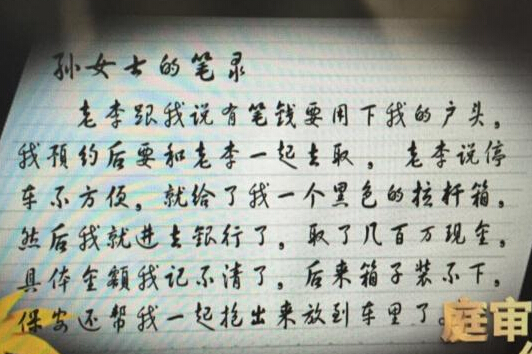 孙女士的笔录
老李跟我说有笔钱要用下我的户头，
我预约后要和老李一起去取，老李说停
车不方便，就给了我一个黑色的拉杆箱，
然后我就进去银行了，取了几百万现金，
具体金额我记不清了，后来箱子装不下，
保安还帮我一起抱出来放到车里了。
庭审